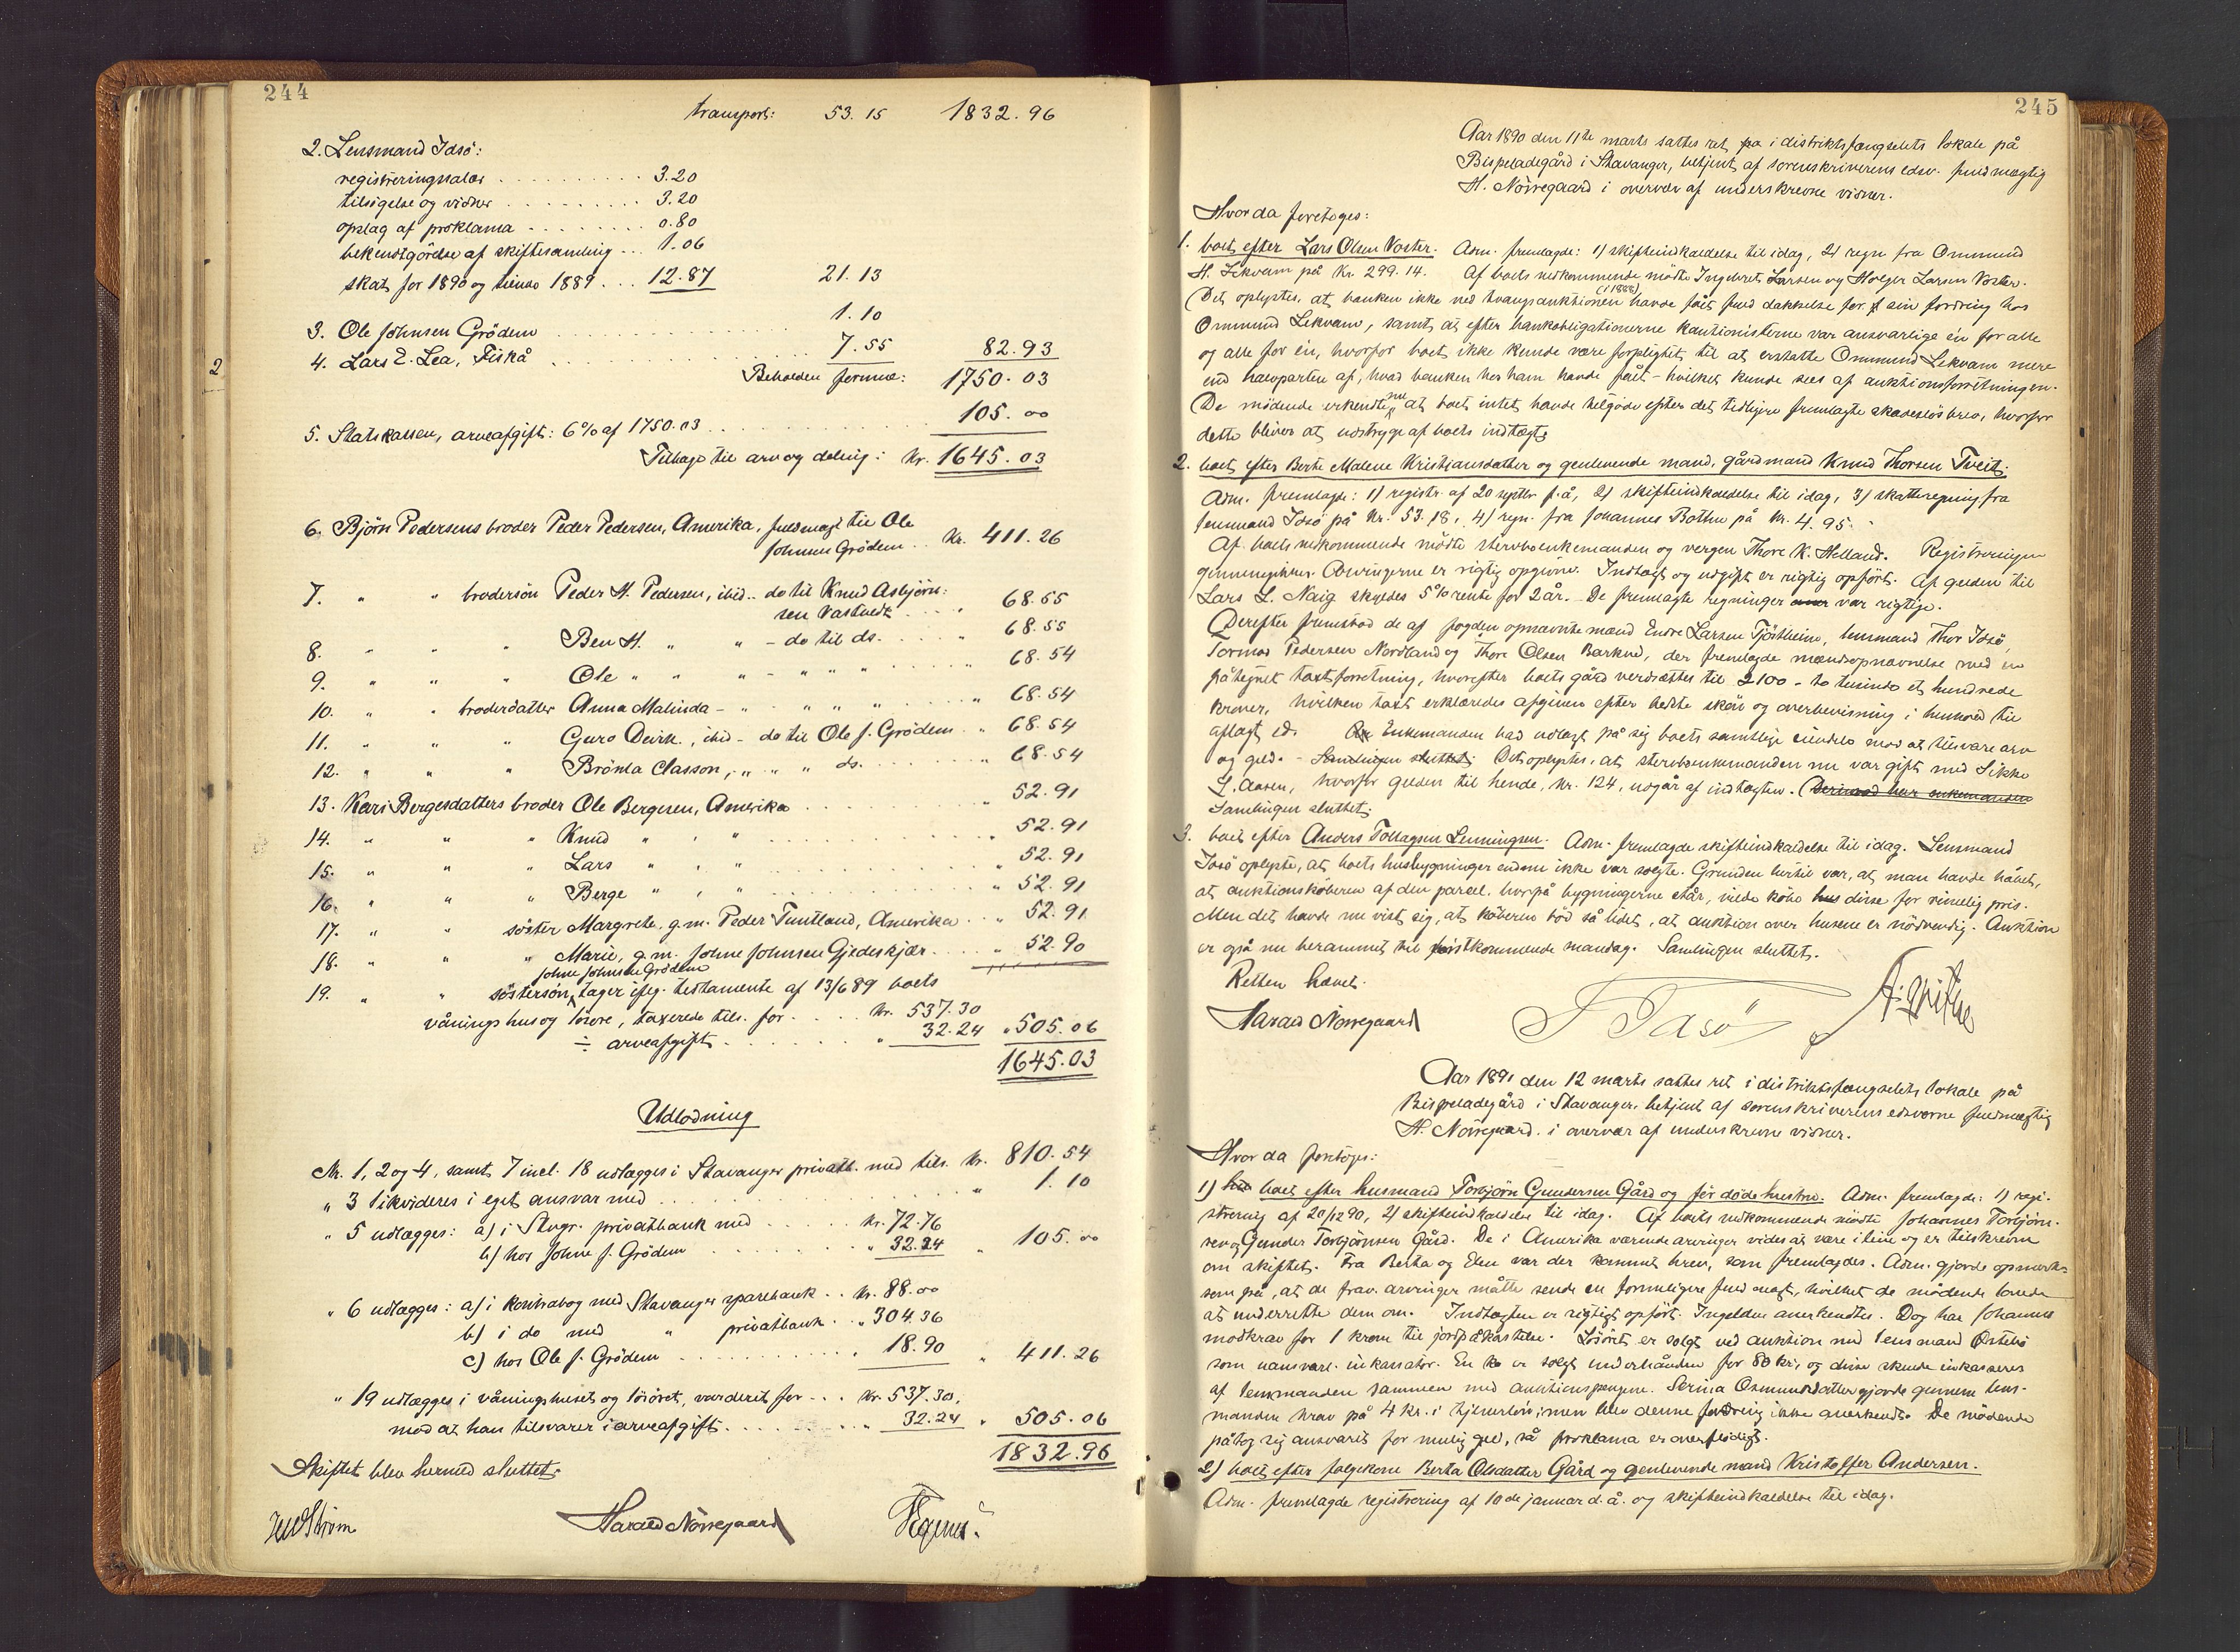 244
transport: 53.15 1832.96
2. Lensmand Idsö:
registreringssalær 3.20
tilsigelse og vidner 3.20
opslag af proklama 0.80
bekendtgörelse af skiftesamling 1.06
skat for 1890 og tiende 1889 12.87 21.13
3. Ole Johnsen Grödem 1.10
4. Lars E. Lea, Fiskå 7.55 82.93
Beholden formue: 1750.03
5. Statskassen, arveafgift: 6% af 1750.03 105.00
Tilbage til arv og deling: kr. 1645.03
6. Björn Pedersens broder Peder Pedersen, Amerika, fuldmagt til Ole
Johnsen Grödem kr. 411.26
7. " " brodersön Peder H. Pedersen, ibid. - do til Knud Asbjörn-
sen Vastvedt " 68.55
8. " " " Ben H. " " - do til ds. " 68.55
9. " " " Ole " " " - " " " " 68.54
10. " " broderdatter Anna Malinda - " " " " " 68.54
11. " " " Guro Deirk., ibid - do til Ole J. Grödem " 68.54
12. " " " Brönla Classon, " " " ds. " 68.54
13. Kari Bergesdatters broder Ole Bergesen, Amerika " 52.91
14. " " " Knud " , " " 52.91
15. " " " Lars " , " " 52.91
16. " " " Berge " , " " 52.91
17. " " söster Margrete, g.m. Peder Tuntland, Amerika " 52.91
18. " " " Marie, g.m. Johne Johnsen Gjedeskjær " 52.90
Johne Johnsen Grödem
19. " " söstersön, tager iflg. testamente af 13/6 89 boets
våningshus og lösöre, taxerede tils. for kr. 537.30
÷ arveafgift " 32.24 " 505.06
1645.03
Udlodning
Nr. 1, 2 og 4, samt 7 incl. 18 udlægges i Stavanger privatb. med tils. kr. 810.54
" 3 likvideres i eget ansvar med " 1.10
" 5 udlægges: a) i Stvgr. privatbank med kr. 72.76
b) hos Johne J. Grödem " 32.24 " 105.00
" 6 udlægges: a) i kontrabog med Stavanger sparebank kr. 88.00
b) i do med " privatbank " 304.36
c) hos Ole J. Grödem " 18.90 " 411.26
" 19 udlægges i våningshuset og lösöret, vurderet for kr. 537.30,
mod at han tilsvarer i arveafgift " 32.24 " 505.06
1832.96
Skiftet blev hermed sluttet.
Harald Nörregaard
245
Aar 1890 den 11te marts sattes ret på i distriktsfængselets lokale på
Bispeladegård i Stavanger, betjent af sorenskriverens edsv. fuldmægtig
H. Nörregaard i overvær af underskrevne vidner.
Hvor da foretoges:
1. boet efter Lars Olsen Voster. Adm. fremlagde: 1) skifteindkaldelse til idag, 2) regn fra Ommund
H. Lekvam på kr. 299.14. Af boets vedkommende mödte Ingebret Larsen og Holger Larsen Voster.
(i 1888)
Det oplystes, at banken ikke ved tvangsauktionen havde fået fuld dækkelse for sin fordring hos
Ommund Lekvam, samt at efter bankobligationerne kautionisterne var ansvarlige én for alle
og alle for én, hvorfor boet ikke kunde være forpligtet til at erstatte Ommund Lekvam mere
end halvparten af, hvad banken hos ham havde fået - hvilket kunde sees af auktionsforretningen.
De mödende erkendte nu at boet intet havde tilgode efter det tidligere fremlagte skadeslösbrev, hvorfor
dette bliver at udstryge af boets indtægt.
2. boet efter Berte Malene Kristiansdatter og genlevende mand, gårdmand Knud Thorsen Tveit.
Adm. fremlagde: 1) registr. af 20 septbr. f.å, 2) skifteindkaldelse til idag, 3) skatteregning fra
lensmand Idsö på kr. 53.18, 4) regn. fra Johannes Bothn på kr. 4.95.
Af boets vedkommende mödte stervboenkemanden og vergen Thore K. Helland. Registreringen
gennemgåes. Arvingerne er rigtig opgivne. Indtægt og udgift er rigtig opfört. Af gælden til
Lars L. Naig skyldes 5% rente for 2 år. De fremlagte regninger var rigtige.
Derefter fremstod de af fogden opnævnte mænd Endre Larsen Tjöstheim, lensmand Thor Idsö,
Tormod Pedersen Nordland og Thore Olsen Barkved, der fremlagde mændsopnævnelse med en
påtegnet taxtforretning, hvorefter boets gård verdsættes til 2100 - to tusinde et hundrede
kroner, hvilken taxt erklæredes afgiven efter bedste skön og overbevisning i henhold til
aflagt ed. Enkemanden bad udlagt på sig boets samtlige eiendele mod at tilsvare arv
og gæld. - Samlingen sluttet. Det oplystes, at stervboenkemanden nu var gift med Sikke
L. Aasen, hvorfor gælden til hende, kr. 124, udgår af indtægten. (Derimod har enkemanden
Samlingen sluttet.
3. boet efter Anders Tollagsen Lenningsen. Adm. fremlagde skifteindkaldelse til idag. Lensmand
Idsö oplyste, at boets husbygninger endnu ikke var solgte. Grunden hertil var, at man havde håbet,
at auktionsköberen af den parcel, hvorpå bygningerne står, vilde köbe hus disse for rimelig pris.
Men det havde nu vist sig, at köberen böd så lidet, at auktion over husene er nödvendig. Auktion
er også nu berammet til förstkommende mandag. Samlingen sluttet.
Retten hævet.
Harald Nörregaard T Idsö
Aar 1891 den 12 marts sattes ret i distriktsfængselets lokale på
Bispeladegård i Stavanger, betjent af sorenskriverens edsvorne fuldmægtig
H. Nörregaard i overvær af underskrevne vidner.
Hvor da foretoges:
1) boet efter husmand Torbjörn Gundersen Gård og för döde hustru. Adm. fremlagde: 1) regi-
strering af 20/12 90, 2) skifteindkaldelse til idag. Af boets vedkommende mödte Johannes Torbjörn-
sen og Gunder Torbjörnsen Gård. De i Amerika værende arvinger vides at være i live og er tilskrevne
om skiftet. Fra Berta og Elen var der kommet brev, som fremlagdes. Adm. gjorde opmærk-
som på, at de frav. arvinger måtte sende en formeligere fuldmagt, hvilket de mödende lovede
at underrette dem om. Indtægten er rigtigt opfört. Ingælden anerkendtes. Dog har Johannes
modkrav for 1 krone til jordpåkastelse. Lösöret er solgt ved auktion med lensmand Östebö
som uansvarl. inkassator. En ko er solgt underhånden for 80 kr, og disse skulde inkasseres
af lensmanden sammen med auktionspengene. Serina Osmundsdatter gjorde gennem lens-
manden krav på 4 kr. i tjenerlön; men blev denne fordring ikke anerkendt. De mödende
påtog sig ansvaret for mulig gæld, så proklama er overflödigt.
2) boet efter fölgekone Berta Olsdatter Gård og genlevende mand Kristoffer Andersen.
Adm. fremlagde registrering af 10de januar d.å. og skifteindkaldelse til idag.
2